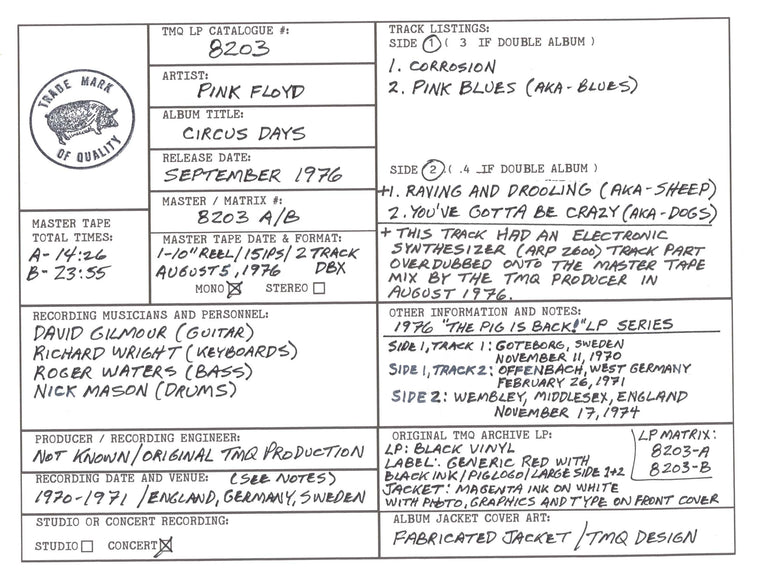 TRADE MARK
OF QUALITY
MASTER TAPE
TOTAL TIMES:
A- 14:26
B- 23:55
TMQ LP CATALOGUE #:
8203
ARTIST:
PINK FLOYD
ALBUM TITLE:
CIRCUS DAYS
RELEASE DATE:
SEPTEMBER 1976
MASTER / MATRIX #:
8203 A/B
MASTER TAPE DATE & FORMAT:
1-10" REEL/15IPS/2TRACK
AUGUST 5, 1976 DBX
MONO STEREO
TRACK LISTINGS:
SIDE 1 ( 3 IF DOUBLE ALBUM )
1. CORROSION
2. PINK BLUES (AKA-BLUES)
SIDE 2 ( .4 IF DOUBLE ALBUM )
+1. RAVING AND DROOLING (AKA-SHEEP)
2. YOU'VE GOTTA BE CRAZY (AKA-DOGS)
+ THIS TRACK HAD AN ELECTRONIC
SYNTHESIZER (ARP 2600) TRACK PART
OVERDUBBED ONTO THE MASTER TAPE
MIX BY THE TMQ PRODUCER IN
AUGUST 1976.
RECORDING MUSICIANS AND PERSONNEL:
DAVID GILMOUR (GUITAR)
RICHARD WRIGHT (KEYBOARDS)
ROGER WATERS (BASS)
NICK MASON (DRUMS)
OTHER INFORMATION AND NOTES:
1976 "THE PIG IS BACK!" LP SERIES
SIDE 1, TRACK 1: GOTEBORG, SWEDEN
NOVEMBER 11, 1970
SIDE 1, TRACK 2: OFFENBACH, WEST GERMANY
FEBRUARY 26, 1971
SIDE 2: WEMBLEY, MIDDLESEX, ENGLAND
NOVEMBER 17, 1974
PRODUCER / RECORDING ENGINEER:
NOT KNOWN/ORIGINAL TMQ PRODUCTION
RECORDING DATE AND VENUE: (SEE NOTES)
1970-1971 /ENGLAND, GERMANY, SWEDEN
STUDIO OR CONCERT RECORDING:
STUDIO CONCERT
ORIGINAL TMQ ARCHIVE LP:
LP: BLACK VINYL
LABEL: GENERIC RED WITH
BLACK INK/PIGLOGO/LARGE SIDE 1+2
JACKET: MAGENTA INK ON WHITE
WITH PHOTO, GRAPHICS AND TYPE ON FRONT COVER
LP MATRIX:
8203-A
8203-B
ALBUM JACKET COVER ART:
FABRICATED JACKET /TMQ DESIGN